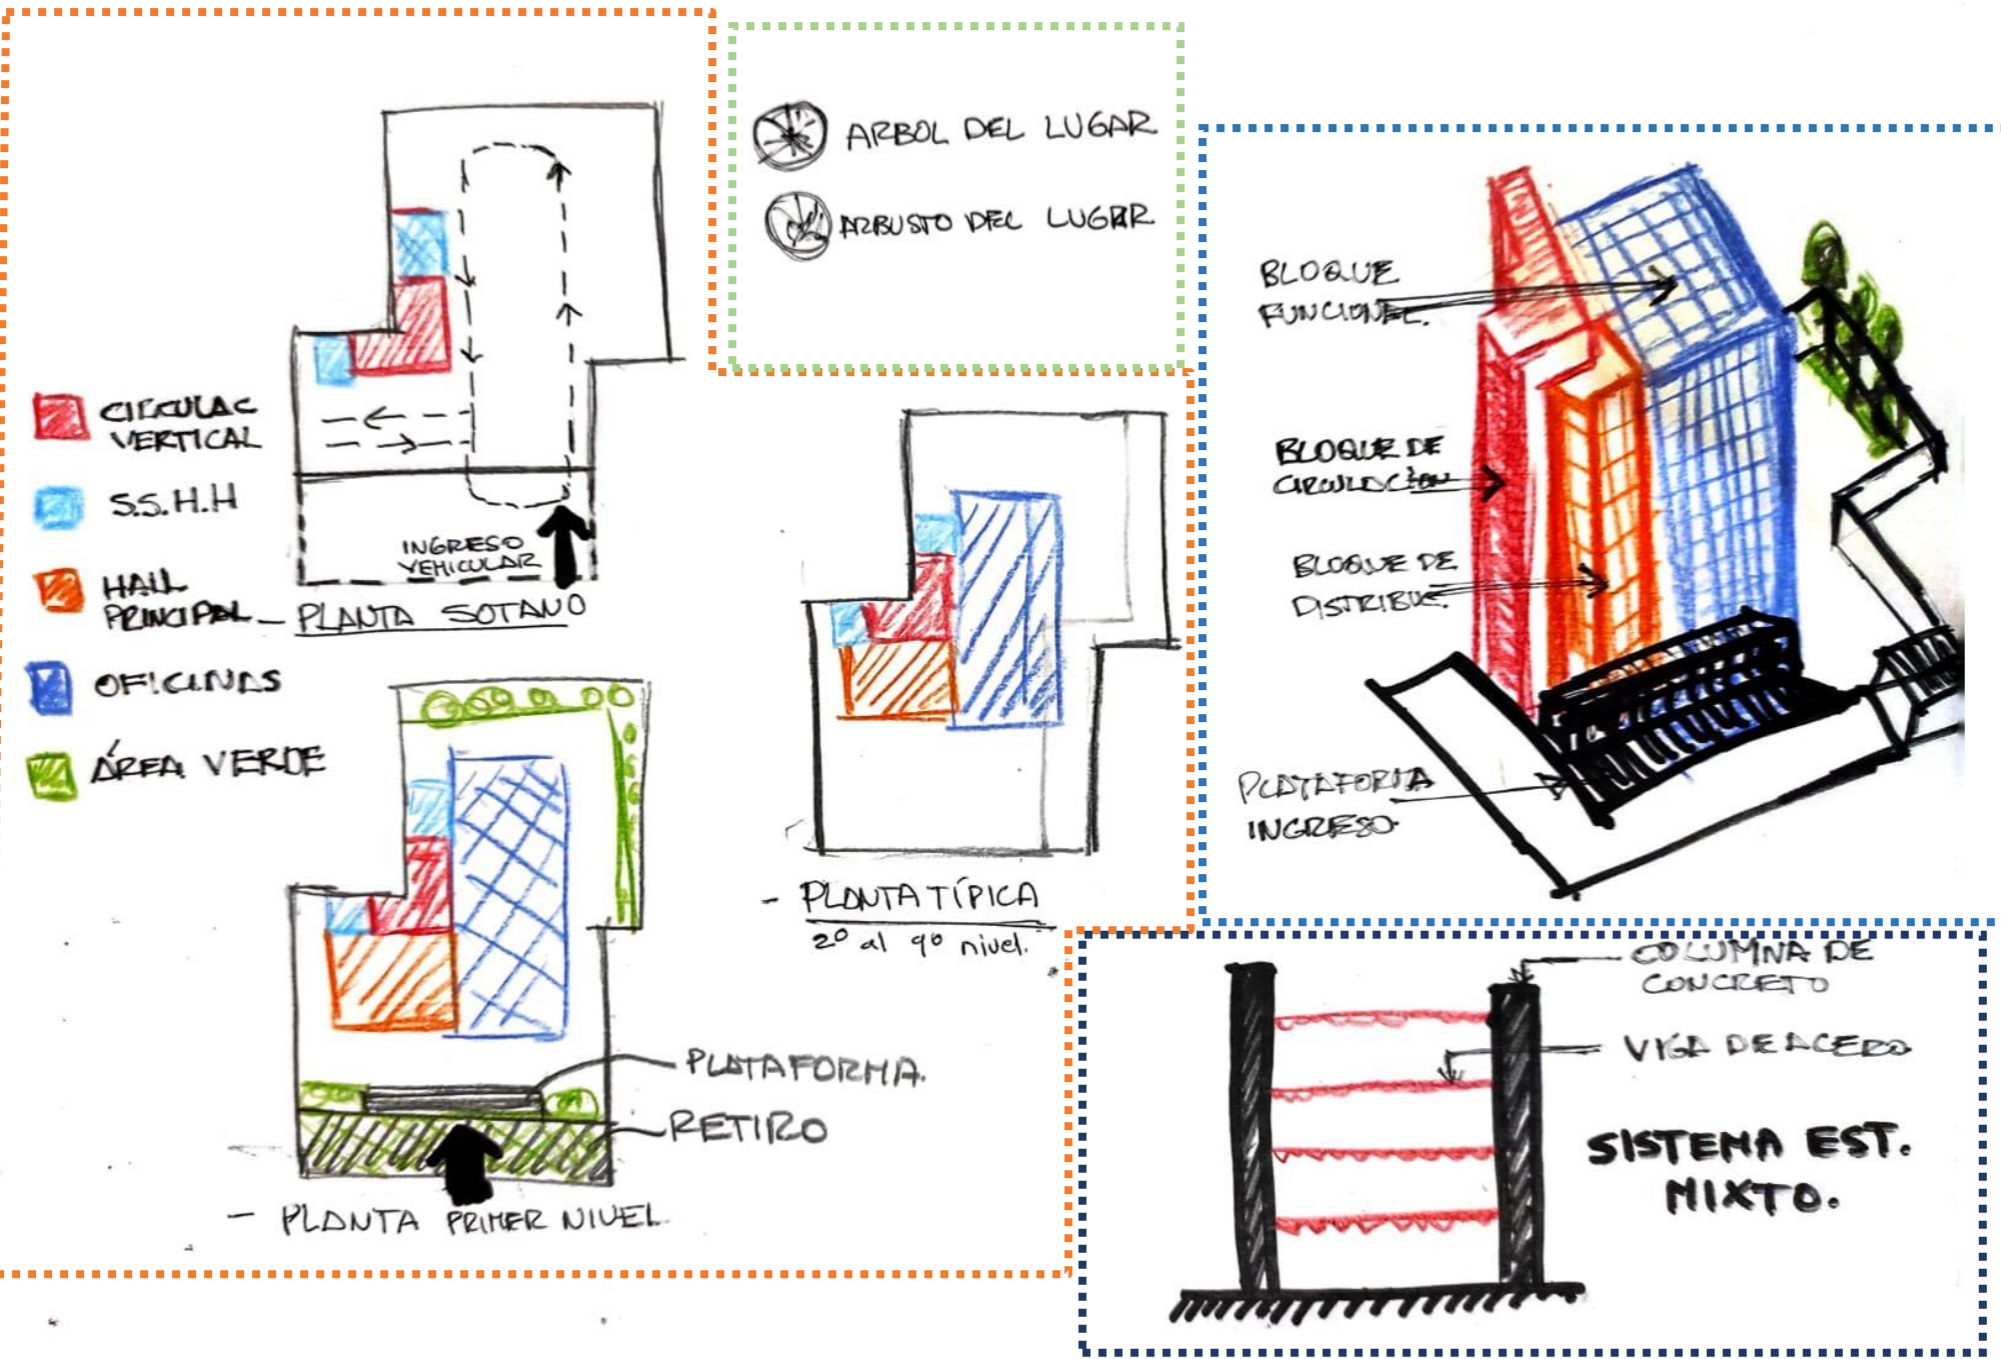 CIRCULAC
VERTICAL
S.S.H.H
HALL
PRINCIPAL
OFICINAS
ÁREA VERDE
INGRESO
VEHICULAR
- PLANTA SOTANO
PLATAFORMA.
RETIRO
- PLANTA PRIMER NIVEL
ARBOL DEL LUGAR
ARBUSTO DEL LUGAR
- PLANTA TÍPICA
2º al 9º nivel.
BLOQUE
FUNCIONEL.
BLOQUE DE
CIRCULACIÓN
BLOQUE DE
DISTRIBUC.
PLATAFORMA
INGRESO.
COLUMNA DE
CONCRETO
VIGA DE ACERO
SISTEMA EST.
MIXTO.